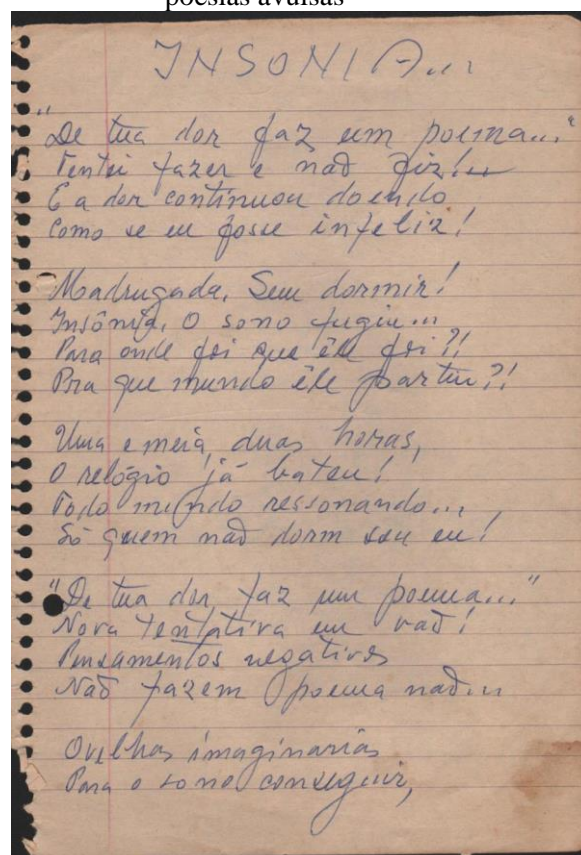 poesias avulsas
INSONIA...
"De tua dor faz um poema..."
Tentei fazer e não fiz!...
E a dor continuou doendo
Como se eu fosse infeliz!
Madrugada. Sem dormir!
Insônia. O sono fugiu...
Para onde foi que êle foi?!
Pra que mundo êle partiu?!
Uma e meia, duas horas,
O relógio já bateu!
Todo mundo ressonando...
Só quem não dorm sou eu!
"De tua dor, faz um poema..."
Nova tentativa em vão!
Pensamentos negativos
Não fazem poema não...
Ovelhas imaginarias
Para o sono conseguir,